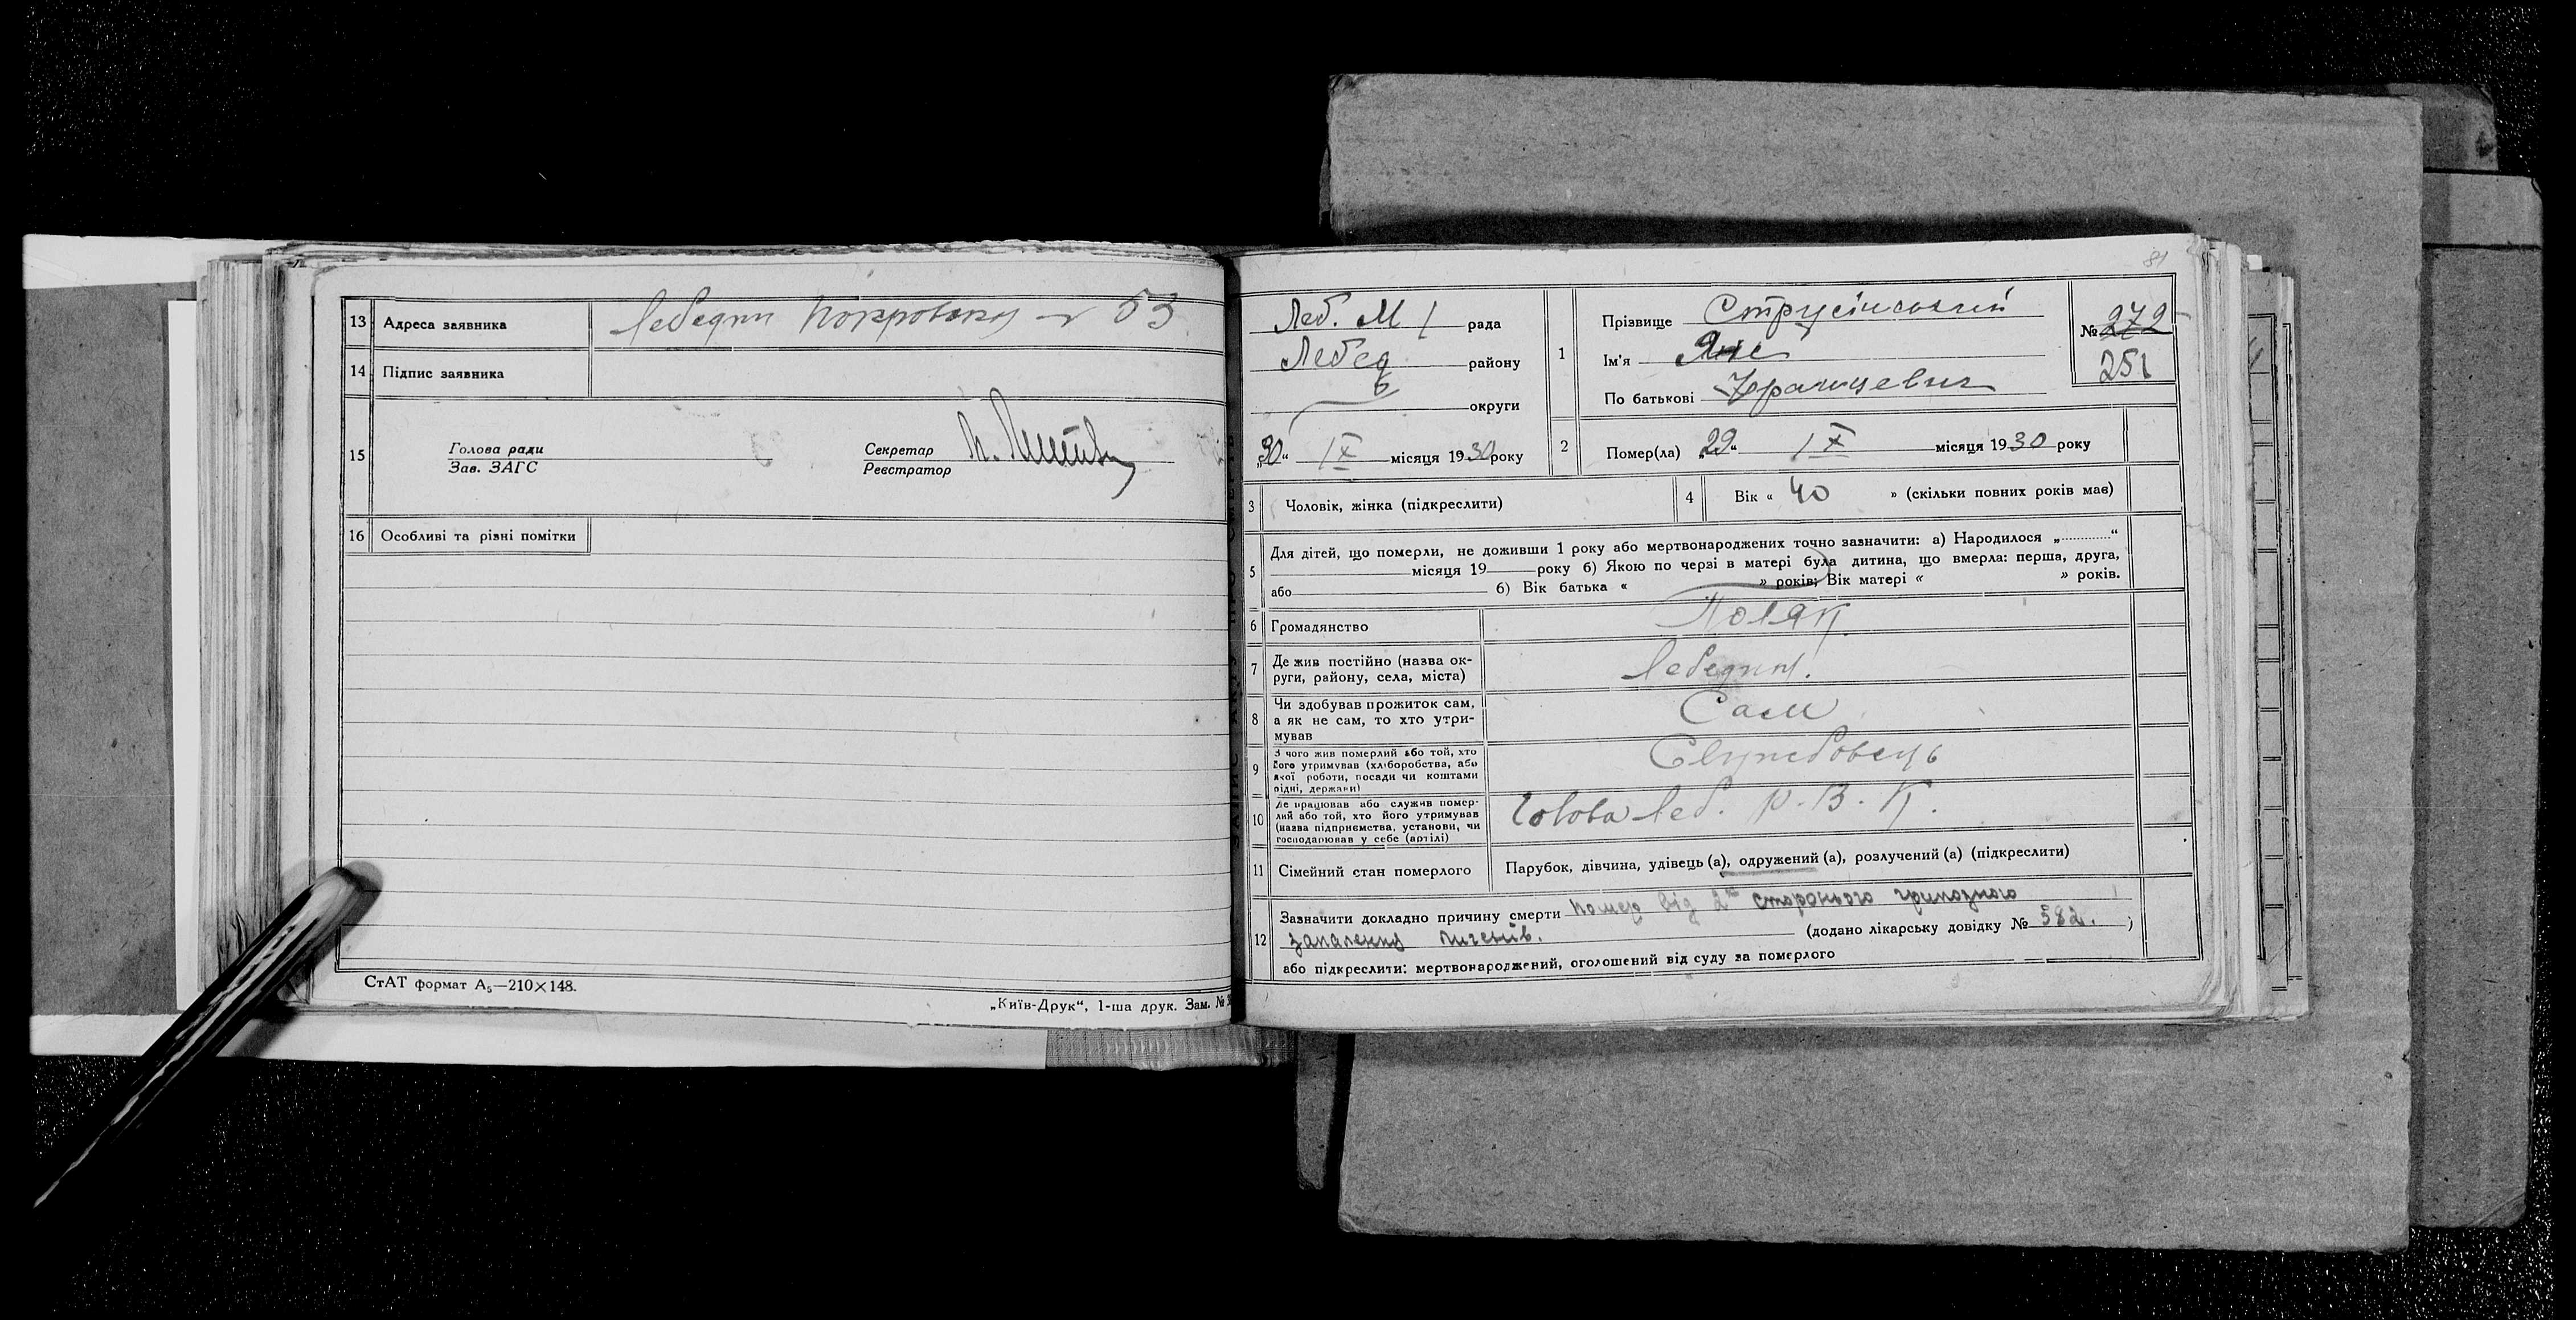 13 Адреса заявника Лебедин Покровська 53
14 Підпис заявника
15 Голова ради
Зав. ЗАГС
Секретар
Реєстратор
16 Особливі та різні помітки
СтАТ формат А₅—210×148.
„Київ-Друк“, 1-ша друк. Зам. №
81
Леб. М/ рада
Лебед району
округи
„30“ IX місяця 1930 року
1 Прізвище Струсінський
Ім'я Ян
По батькові Францевич
№ 272
251
2 Помер(ла) „29“ IX місяця 1930 року
3 Чоловік, жінка (підкреслити)
4 Вік « 40 » (скільки повних років має)
5 Для дітей, що померли, не доживши 1 року або мертвонароджених точно зазначити: а) Народилося „............“
місяця 19 року б) Якою по черзі в матері була дитина, що вмерла: перша, друга,
або б) Вік батька « » років; Вік матері « » років.
6 Громадянство Поляк
7 Де жив постійно (назва ок-
руги, району, села, міста) Лебедин.
8 Чи здобував прожиток сам,
а як не сам, то хто утри-
мував Сам
9 З чого жив померлий або той, хто
його утримував (хліборобства, або
якої роботи, посади чи коштами
рідні, держави) Службовець
10 Де працював або служив помер-
лий або той, хто його утримував
(назва підприємства, установи, чи
господарював у себе (артілі) Голова Леб. Р.В.К.
11 Сімейний стан померлого Парубок, дівчина, удівець (а), одружений (а), розлучений (а) (підкреслити)
12 Зазначити докладно причину смерти Помер від 2х сторонього грипозного
запалення легенів. (додано лікарську довідку № 582. )
або підкреслити: мертвонароджений, оголошений від суду за померлого